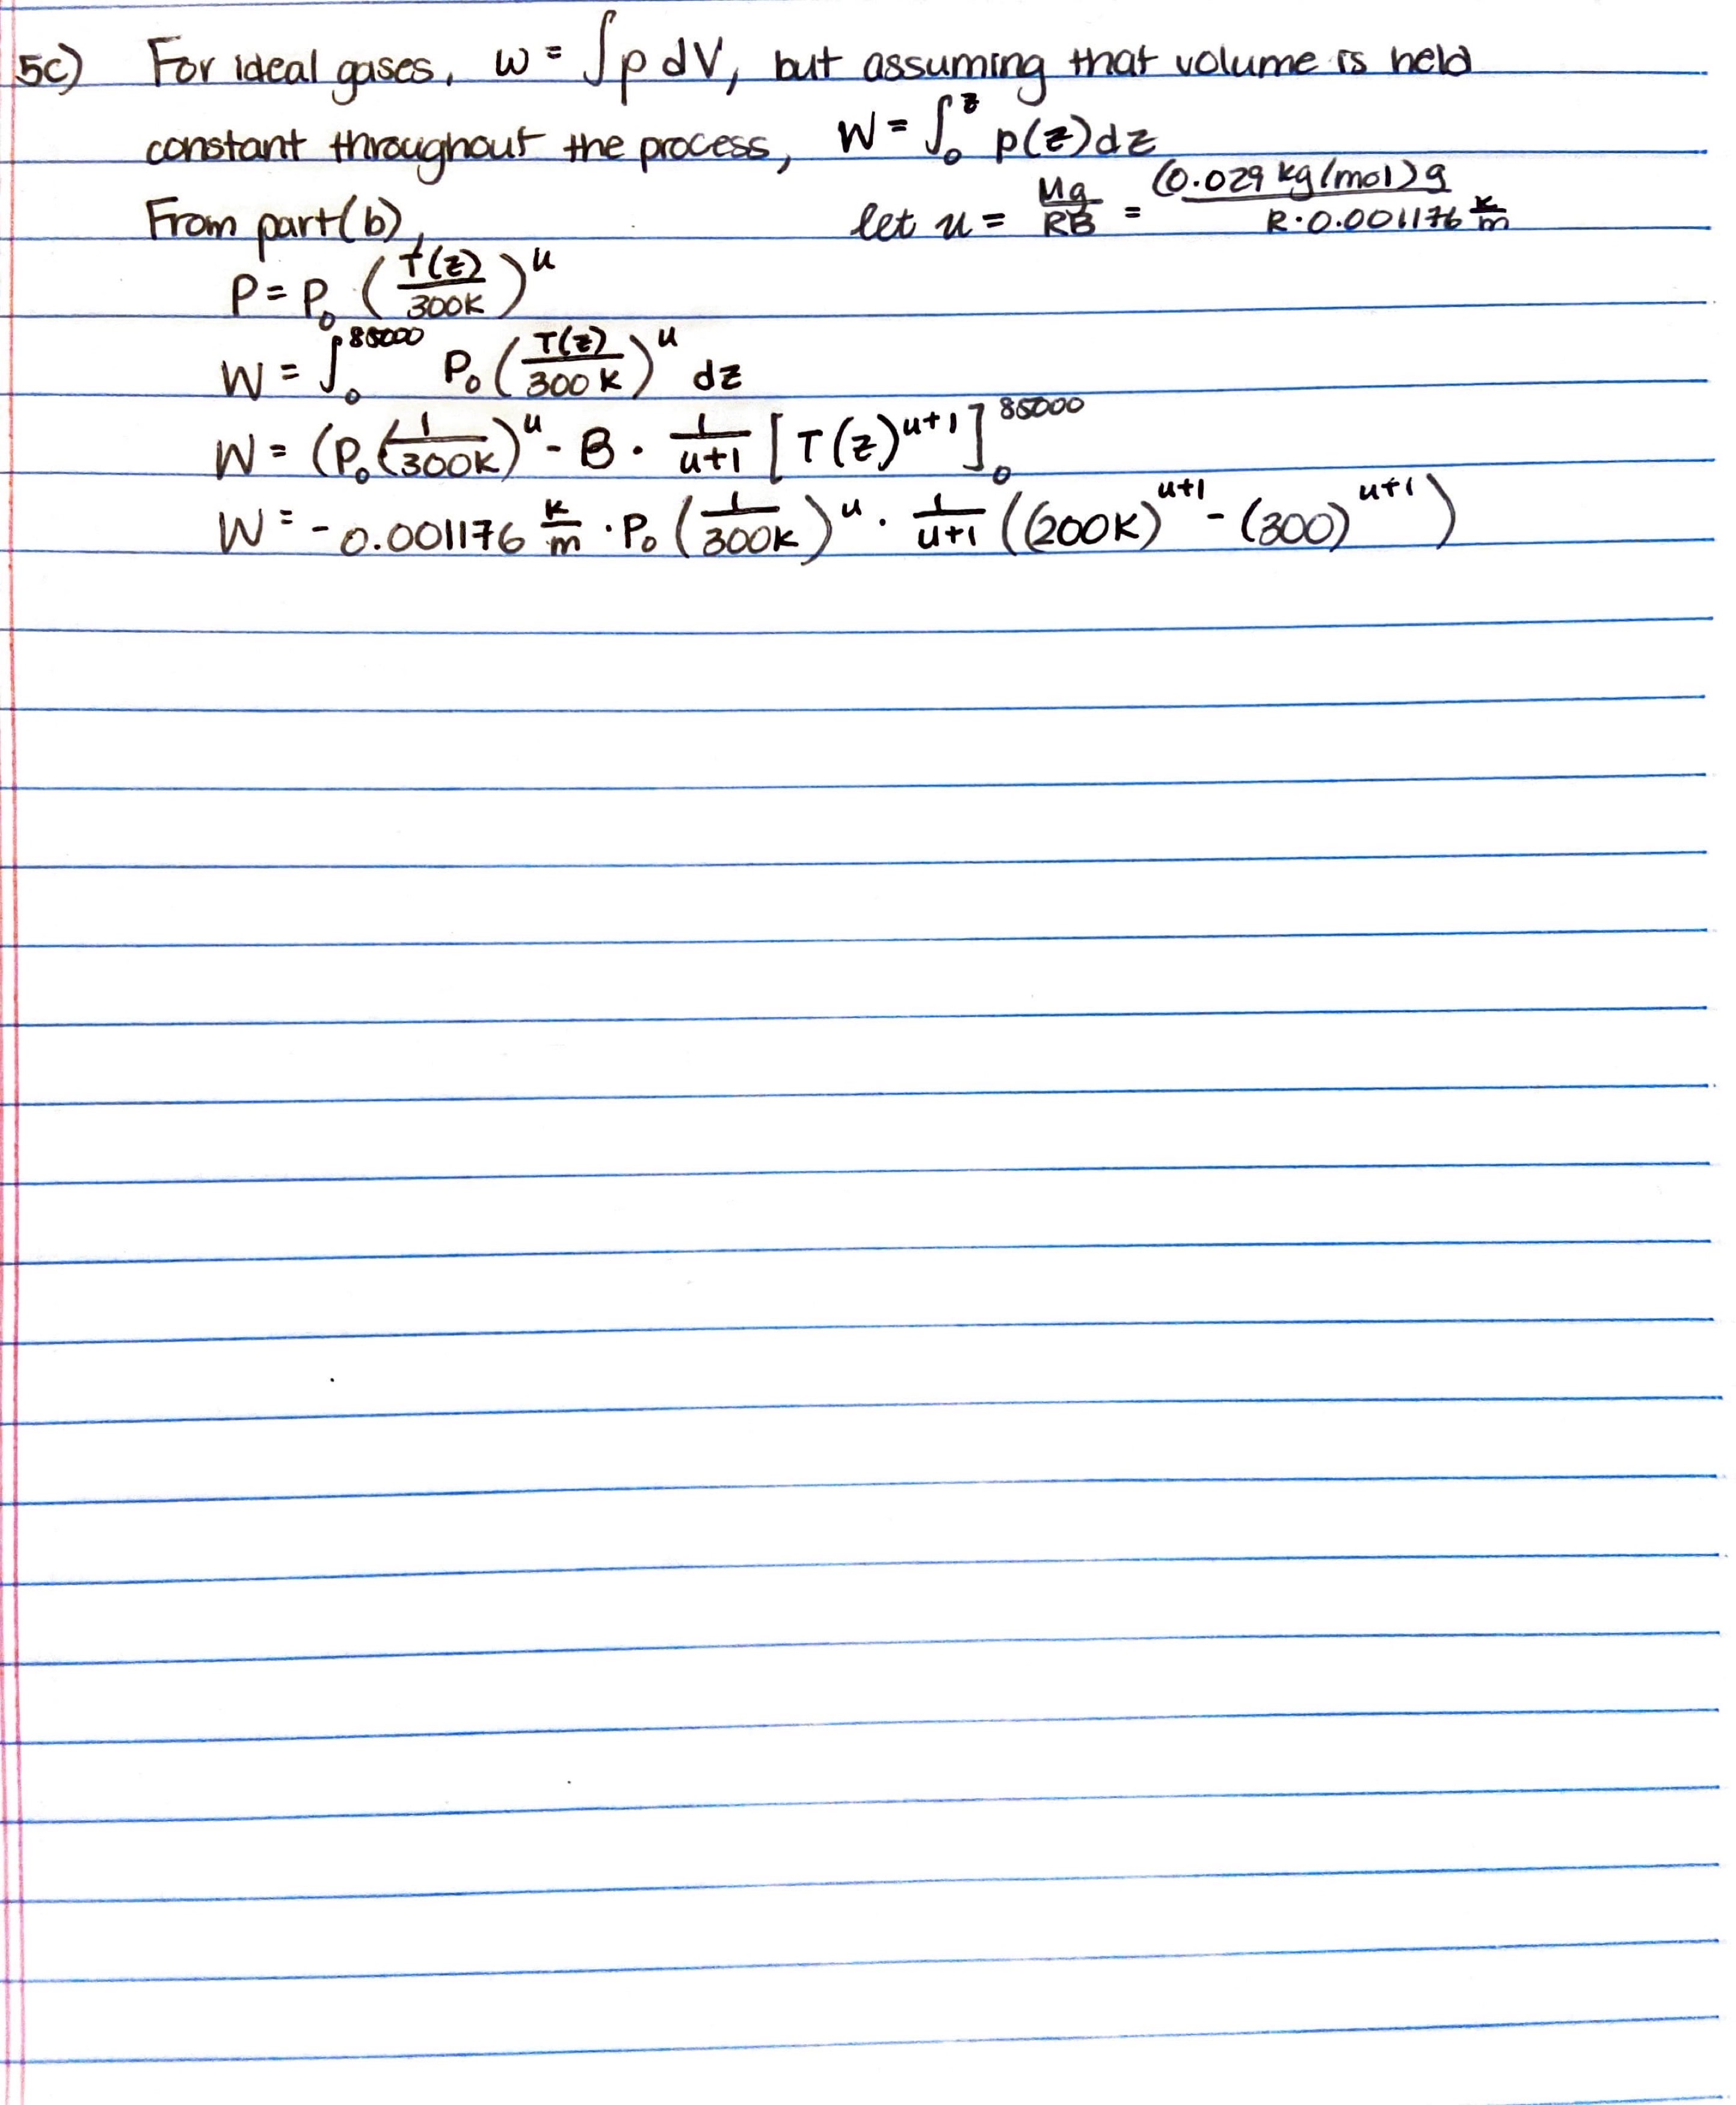 5c) For ideal gases, w = ∫p dV, but assuming that volume is held
constant throughout the process, W = ∫₀ᶻ p(z)dz
From part(b), let u = Mg/RB = (0.029 kg/mol)g / R·0.001176 K/m
P = P₀ (T(z)/300K)^u
W = ∫₀^85000 P₀ (T(z)/300K)^u dz
W = (P₀(1/300K)^u - B · 1/u+1 [T(z)^u+1]₀^85000
W = -0.001176 K/m · P₀ (1/300K)^u · 1/u+1 ((200K)^u+1 - (300)^u+1)